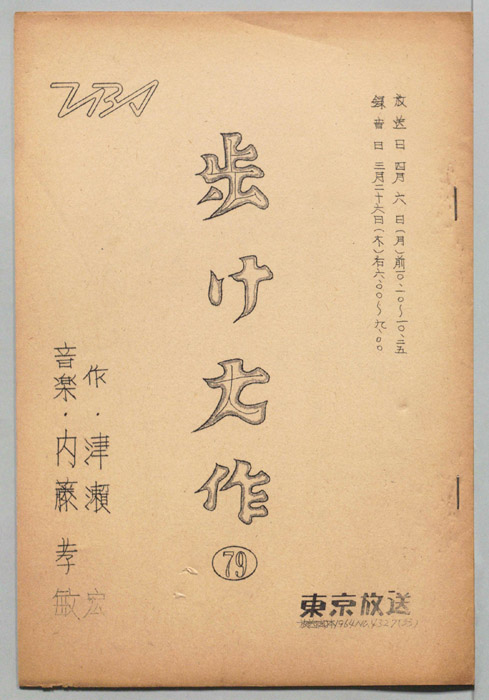 放送日 四月 六 日(月)前一〇・一〇〜一〇、二五
録音日 三月二十六日(木)右六、〇〇〜九、〇〇
TBS
歩け大作
79
作・津瀬 宏
音楽・内藤孝敏
東京放送